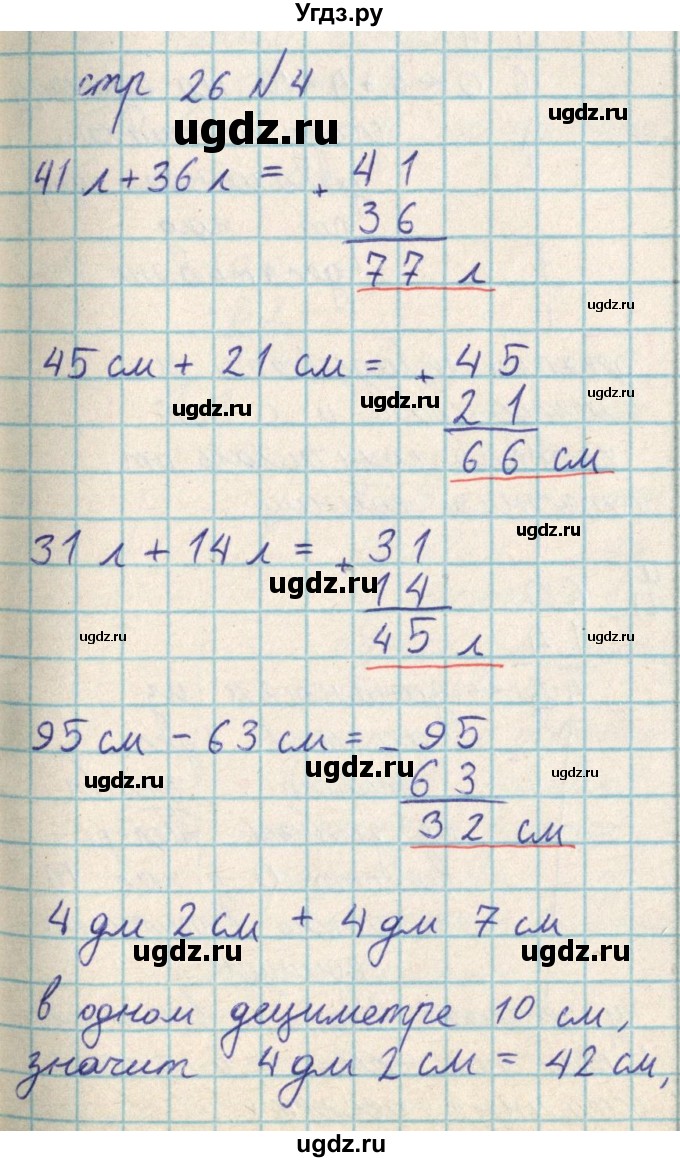 Угдз.ру
стр 26 №4
ugdz.ru
ugdz.ru
41 л + 36 л = + 41
36
77 л
ugdz.ru
45 см + 21 см = + 45
ugdz.ru ugdz.ru ugdz.ru
21
66 см
ugdz.ru
31 л + 14 л = + 31
ugdz.ru
14
ugdz.ru ugdz.ru
45 л
95 см - 63 см = - 95
ugdz.ru ugdz.ru ugdz.ru
63
32 см
4 дм 2 см + 4 дм 7 см
ugdz.ru ugdz.ru
в одном дециметре 10 см,
значит 4 дм 2 см = 42 см,
ugdz.ru